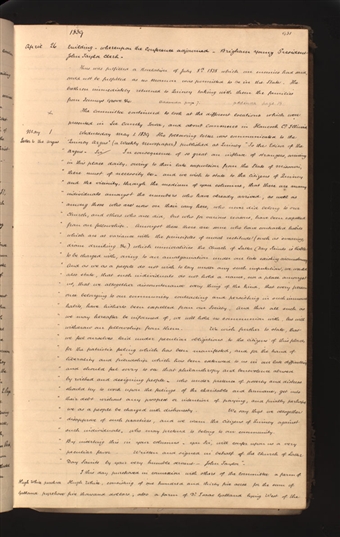 1839
April 26 building - whereupon the Conference adjourned. Brigham Young President
John Taylor Clerk.
the Revelation of July 8th 1838 which
The
brethren immediately returned to Quincy taking with them the families
from
The committee continued to look at the different locations which were
presented in Lee County, Iowa, and about Commerce in Hancock Co Illinois
May 1 Wednesday May 1 1839. The following letter was communicated to the
"Quincy Argus" (a weekly newspaper) published at Quincy "To the Editor of the
Argus. Sir: In consequence of so great an influx of strangers, arriving
in this place daily, owing to their late expulsion from the State of Missouri,
there must of necessity be, and we wish to state to the Citizens of Quincy
and the vicinity, through the medium of your columns, that there are many
individuals amongst the numbers who have already arrived, as well as
among those who are now on their way here, who never did belong to our
Church, and others who once did, but who for various reasons, have been expelled
from our fellowship. Amongst these there are some who have contracted habits
which are at variance with the principles of moral rectitude (such as swearing,
dram drinking &c) which immoralities the Church of Latter Day Saints is liable
to be charged with, owing to our amalgamation under our late existing circumstances
And as we as a people do not wish to lay under any such imputation, we would
also state, that such individuals do not hold a name, nor a place amongst
us, that we altogether discountenance every thing of the kind, that every person
once belonging to our community, contracting and persisting in such immoral
habits, have hitherto been expelled from our Society, and that such as
we may hereafter be informed of, we will hold no communion with but will
withdraw our fellowship from them. We wish further to state, that
we feel ourselves laid under peculiar obligations to the citizens of this place
for the patriotic feeling which has been manifested, and for the hand of
liberality and friendship which has been extended to us in our late difficulties
and should feel sorry to see that philanthropy and benevolence abused
by wicked and designing people, who under pretence of poverty and distress
should try to work upon the feelings of the charitable and humane, get into
their debt without any prospect or intention of paying, and finally perhaps
we as a people be charged with dishonesty. We say that we altogether
disapprove of such practices, and we warn the Citizens of Quincy against
such individuals, who may pretend to belong to our community.
By inserting this in your columns, you Sir, will confer upon us a very
peculiar favor. Written and signed in behalf of the Church of Latter
Day Saints by your very humble servant - John Taylor"
I this day purchased in connection with others of the committee, a farm of
Hugh White, consisting of one hundred and thirty five acres for the sum of
five thousand dollars, also a farm of Dr Isaac Galland lying West of the